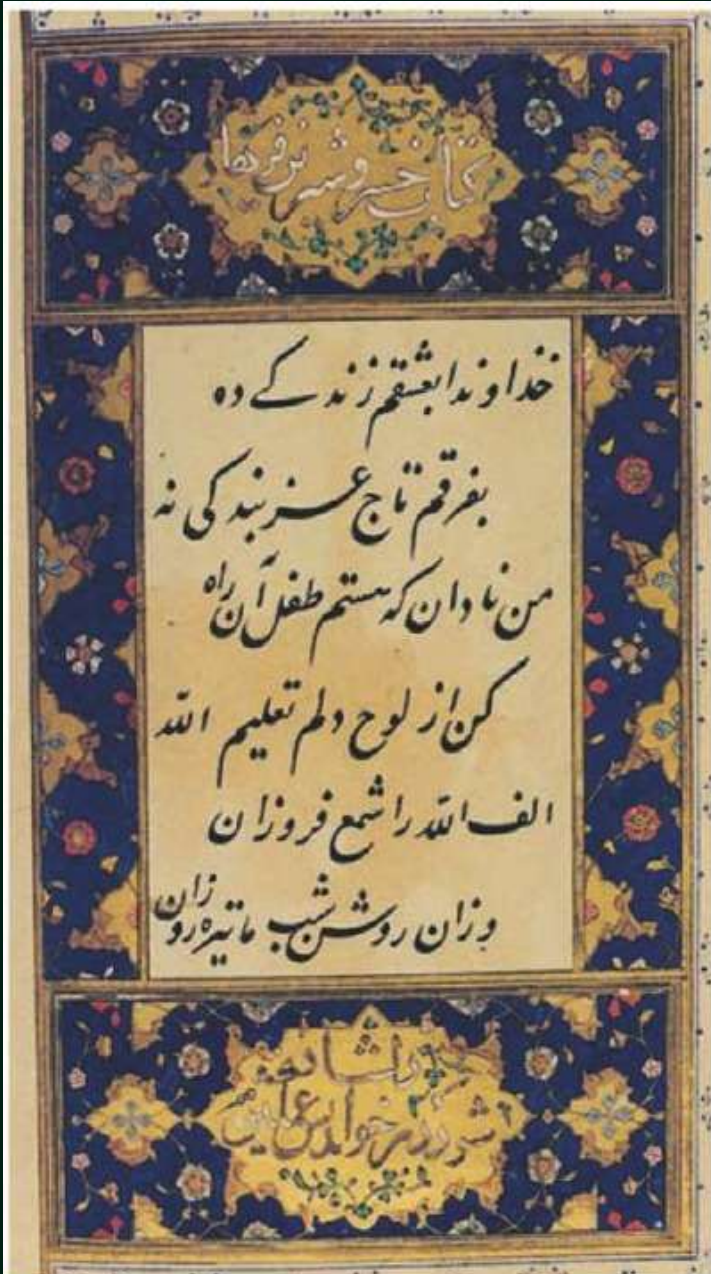 کتاب خسرو شیرین فرهاد
خداوندا بعشقم زندگی ده
بفرقم تاج عز بندگی نه
من نادان که هستم طفل آن راه
کن از لوح دلم تعلیم الله
الف الله را شمع فروزان
وزان روشن شب ما تیره روزان